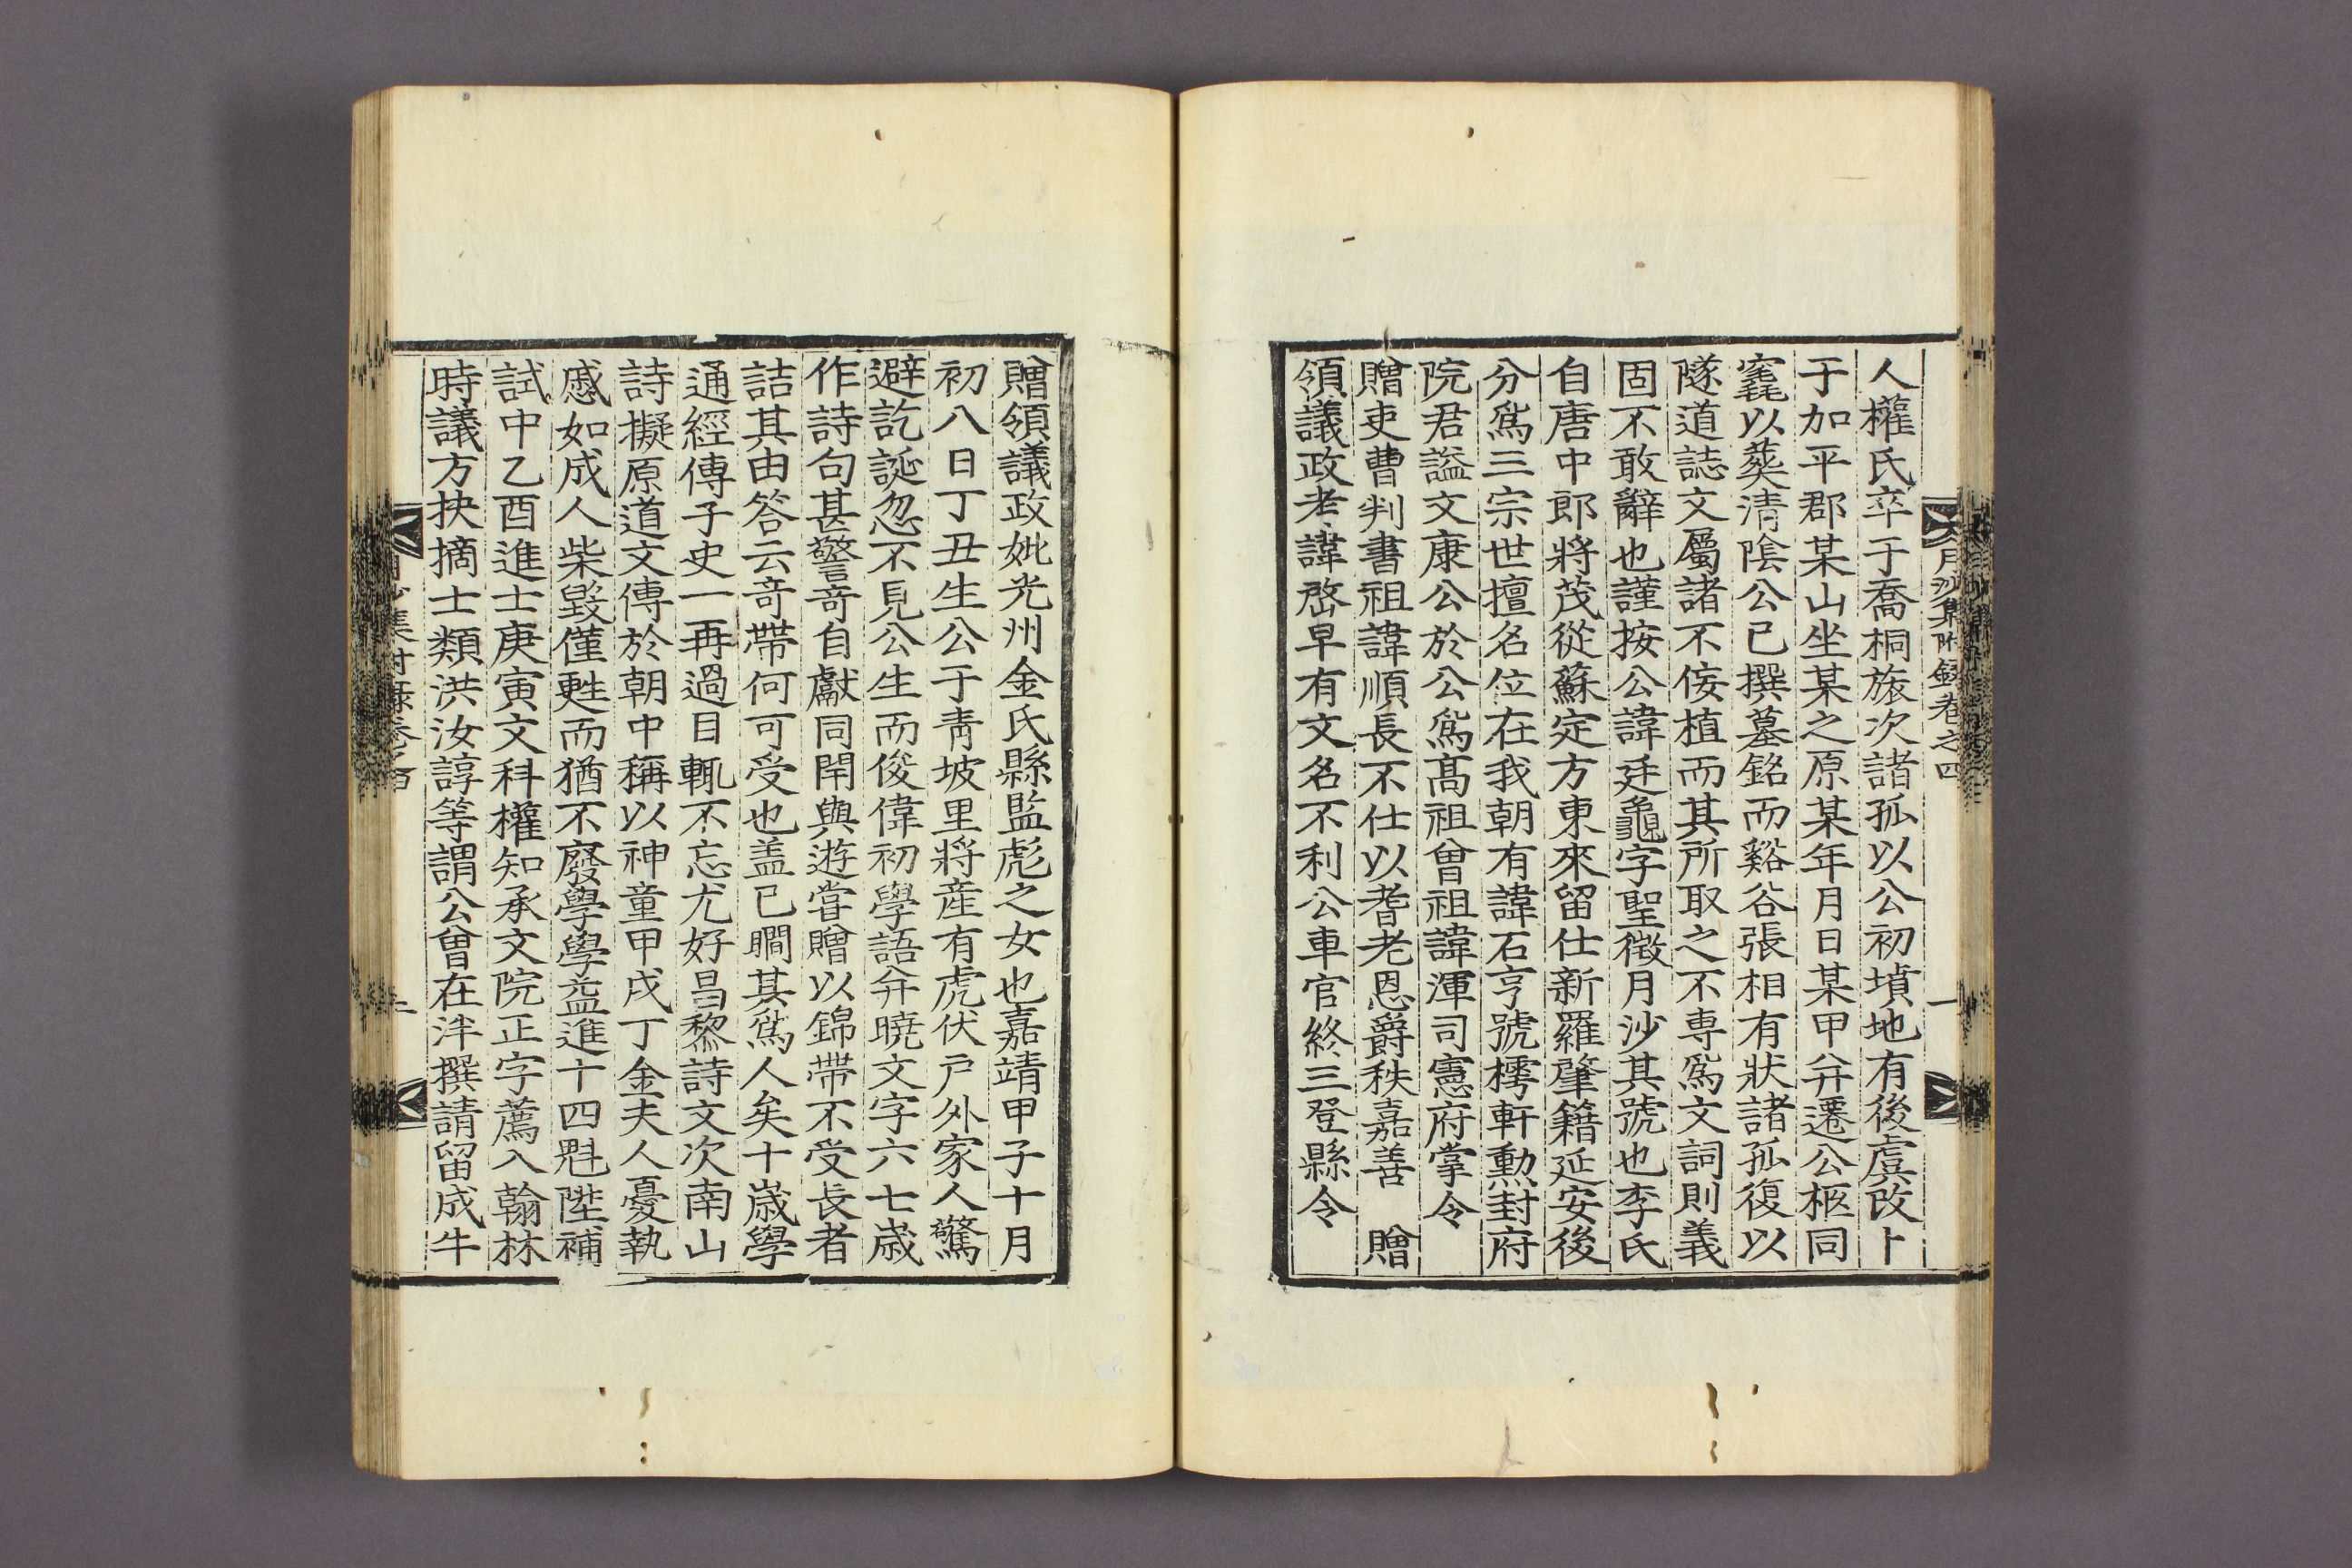 月沙集附錄卷之四
一
人權氏卒于喬桐旅次諸孤以公初墳地有後虞改卜
于加平郡某山坐某之原某年月日某甲弁遷公柩同
窆以葬淸陰公已撰墓銘而谿谷張相有狀諸孤復以
隧道誌文屬諸不侫植而其所取之不專爲文詞則義
固不敢辭也謹按公諱廷龜字聖徵月沙其號也李氏
自唐中郎將茂從蘇定方東來留仕新羅肇籍延安後
分爲三宗世擅名位在我朝有諱石亨號樗軒勳封府
院君謚文康公於公爲髙祖曾祖諱渾司憲府掌令
贈吏曹判書祖諱順長不仕以耆老恩爵秩嘉善　贈
領議政考諱啓早有文名不利公車官終三登縣令
贈領議政妣光州金氏縣監彪之女也嘉靖甲子十月
初八日丁丑生公于靑坡里將産有虎伏戶外家人驚
避訖誕忽不見公生而俊偉初學語弁曉文字六七歲
作詩句甚警奇自獻同閈與遊嘗贈以錦帶不受長者
詰其由答云奇帶何可受也盖已瞯其爲人矣十歲學
通經傳子史一再過目輒不忘尤好昌黎詩文次南山
詩擬原道文傳於朝中稱以神童甲戌丁金夫人憂執
慼如成人柴毀僅甦而猶不廢學學益進十四魁陞補
試中乙酉進士庚寅文科權知承文院正字薦入翰林
時議方抉摘士類洪汝諄等謂公曾在泮撰請留成牛